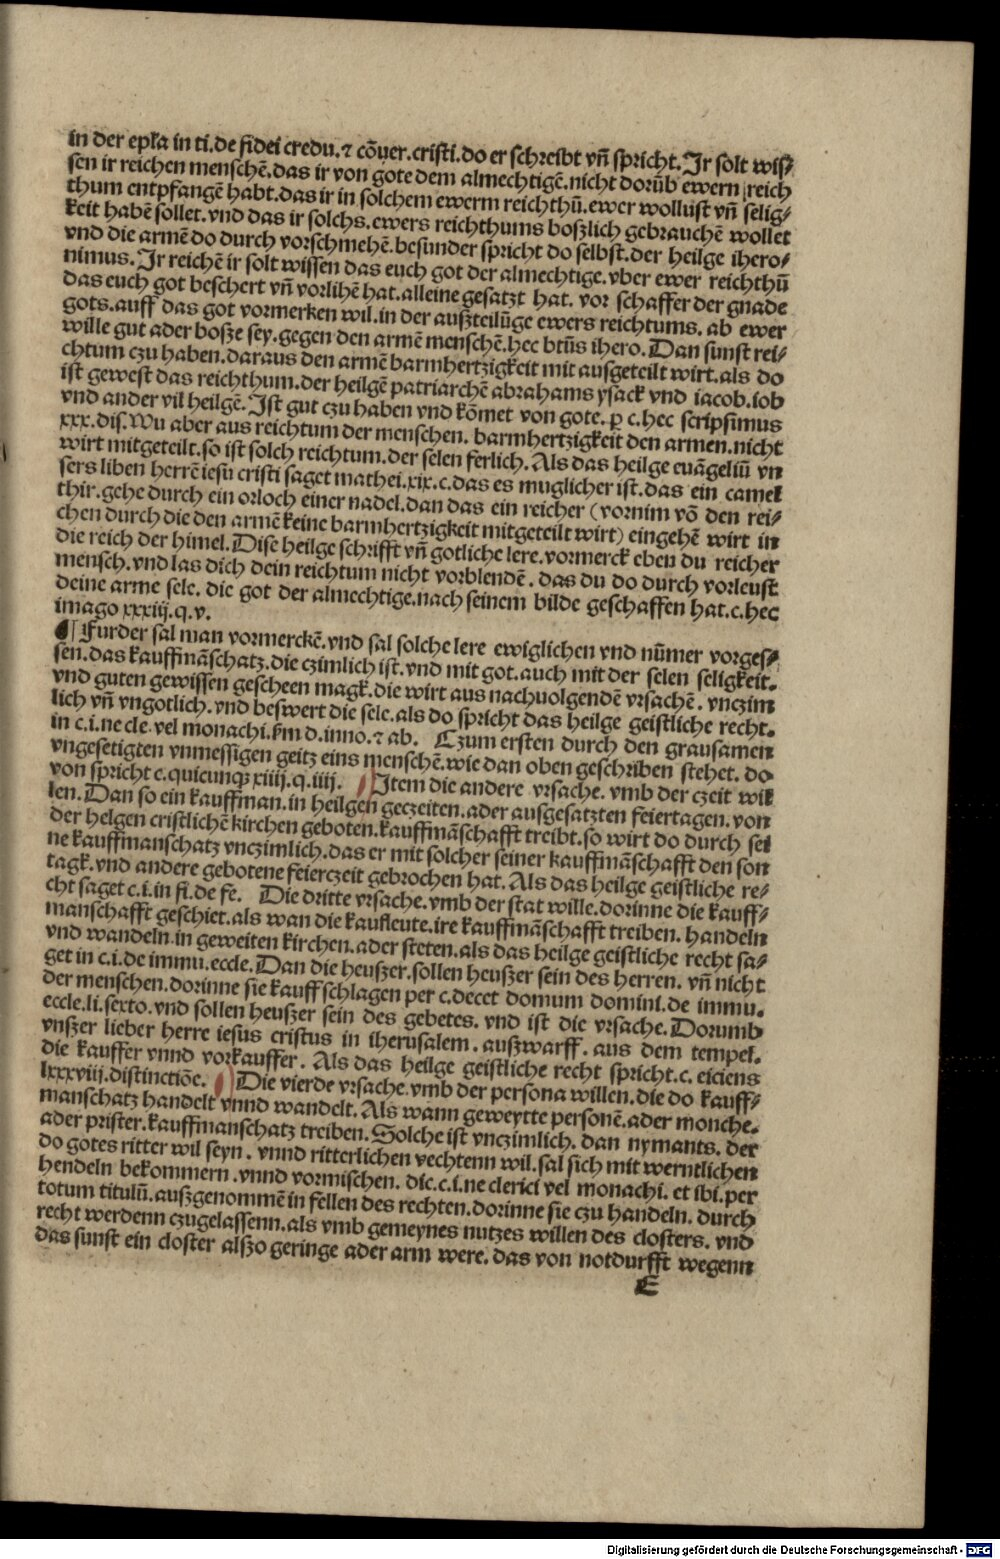 in der epl̃a in ti. de fidei credu. ⁊ cõuer. cristi. do er schreibt vñ spricht. Ir solt wis⸗
sen ir reichen menschẽ. das ir von gote dem almechtigẽ. nicht dorũb ewern reich
thum entpfangẽ habt. das ir in solchem ewerm reichthũ. ewer wollust vñ selig⸗
keit habẽ sollet. vnd das ir solchs. ewers reichthums boßlich gebrauchẽ wollet
vnd die armẽ do durch vorschmehẽ. besunder spricht do selbst. der heilge ihero⸗
nimus. Ir reichẽ ir solt wissen das euch got der almechtige. vber ewer reichthũ
das euch got beschert vñ vorlihẽ hat. alleine gesatzt hat. vor schaffer der gnade
gots. auff das got vormerken wil. in der außteilũge ewers reichtums. ab ewer
wille gut ader boße sey. gegen den armẽ menschẽ. hec btũs ihero. Dan sunst rei⸗
chtum czu haben. daraus den armẽ barmhertzigkeit mit ausgeteilt wirt. als do
ist gewest das reichthum. der heilgẽ patriarchẽ abrahams ysack vnd iacob. iob
vnd ander vil heilgẽ. Ist gut czu haben vnd kõmet von gote. ꝑ c. hec scripsimus
xxx. dis. Wu aber aus reichtum der menschen. barmhertzigkeit den armen. nicht
wirt mitgeteilt. so ist solch reichtum. der selen ferlich. Als das heilge euãgeliũ vn
sers liben herrẽ iesu cristi saget mathei. xix. c. das es muglicher ist. das ein camel
thir. gehe durch ein orloch einer nadel. dan das ein reicher (vornim võ den rei⸗
chen durch die den armẽ keine barmhertzigkeit mitgeteilt wirt) eingehẽ wirt in
die reich der himel. Dise heilge schrifft vñ gotliche lere. vormerck eben du reicher
mensch. vnd las dich dein reichtum nicht vorblendẽ. das du do durch vorleust
deine arme sele. die got der almechtige. nach seinem bilde geschaffen hat. c. hec
imago xxxiij. q. v.
¶ Furder sal man vormerckẽ. vnd sal solche lere ewiglichen vnd nũmer vorges⸗
sen. das kauffmãschatz. die czimlich ist. vnd mit got. auch mit der selen seligkeit.
vnd guten gewissen gescheen magk. die wirt aus nachuolgendẽ vrsachẽ. vnczim
lich vñ vngotlich. vnd beswert die sele. als do spricht das heilge geistliche recht.
in c. i. ne cle. vel monachi. km d. inno. ⁊ ab. Czum ersten durch den grausamen
vngesetigten vnmessigen geitz eins menschẽ. wie dan oben geschriben stehet. do
von spricht c. quicunqꝫ xiiij. q. iiij. Item die andere vrsache. vmb der czeit wil
len. Dan so ein kauffman. in heilgen geczeiten. ader ausgesatzten feiertagen. von
der helgen cristlichẽ kirchen geboten. kauffmãschafft treibt. so wirt do durch sei
ne kauffmanschatz vnczimlich. das er mit solcher seiner kauffmãschafft den son
tagk. vnd andere gebotene feierczeit gebrochen hat. Als das heilge geistliche re⸗
cht saget c. i. in fi. de fe. Die dritte vrsache. vmb der stat wille. dorinne die kauff⸗
manschafft geschiet. als wan die kaufleute. ire kauffmãschafft treiben. handeln
vnd wandeln. in geweiten kirchen. ader steten. als das heilge geistliche recht sa⸗
get in c. i. de immu. eccle. Dan die heußer. sollen heußer sein des herren. vñ nicht
der menschen. dorinne sie kauffschlagen per c. decet domum domini. de immu.
eccle. li. sexto. vnd sollen heußer sein des gebetes. vnd ist die vrsache. Dorumb
vnßer lieber herre iesus cristus in iherusalem. außwarff. aus dem tempel.
die kauffer vnnd vorkauffer. Als das heilge geistliche recht spricht. c. eiciens
lxxxviij. distinctiõe. Die vierde vrsache. vmb der persona willen. die do kauff⸗
manschatz handelt vnnd wandelt. Als wann geweytte personẽ. ader monche.
ader prister. kauffmanschatz treiben. Solche ist vnczimlich. dan nymants. der
do gotes ritter wil seyn. vnnd ritterlichen vechtenn wil. sal sich mit werntlichen
hendeln bekommern. vnnd vormischen. dic. c. i. ne clerici vel monachi. et ibi. per
totum titulũ. außgenommẽ in fellen des rechten. dorinne sie czu handeln. durch
recht werdenn czugelassenn. als vmb gemeynes nutzes willen des closters. vnd
das sunst ein closter alßo geringe ader arm were. das von notdurfft wegenn
E
Digitalisierung gefördert durch die Deutsche Forschungsgemeinschaft - DFG